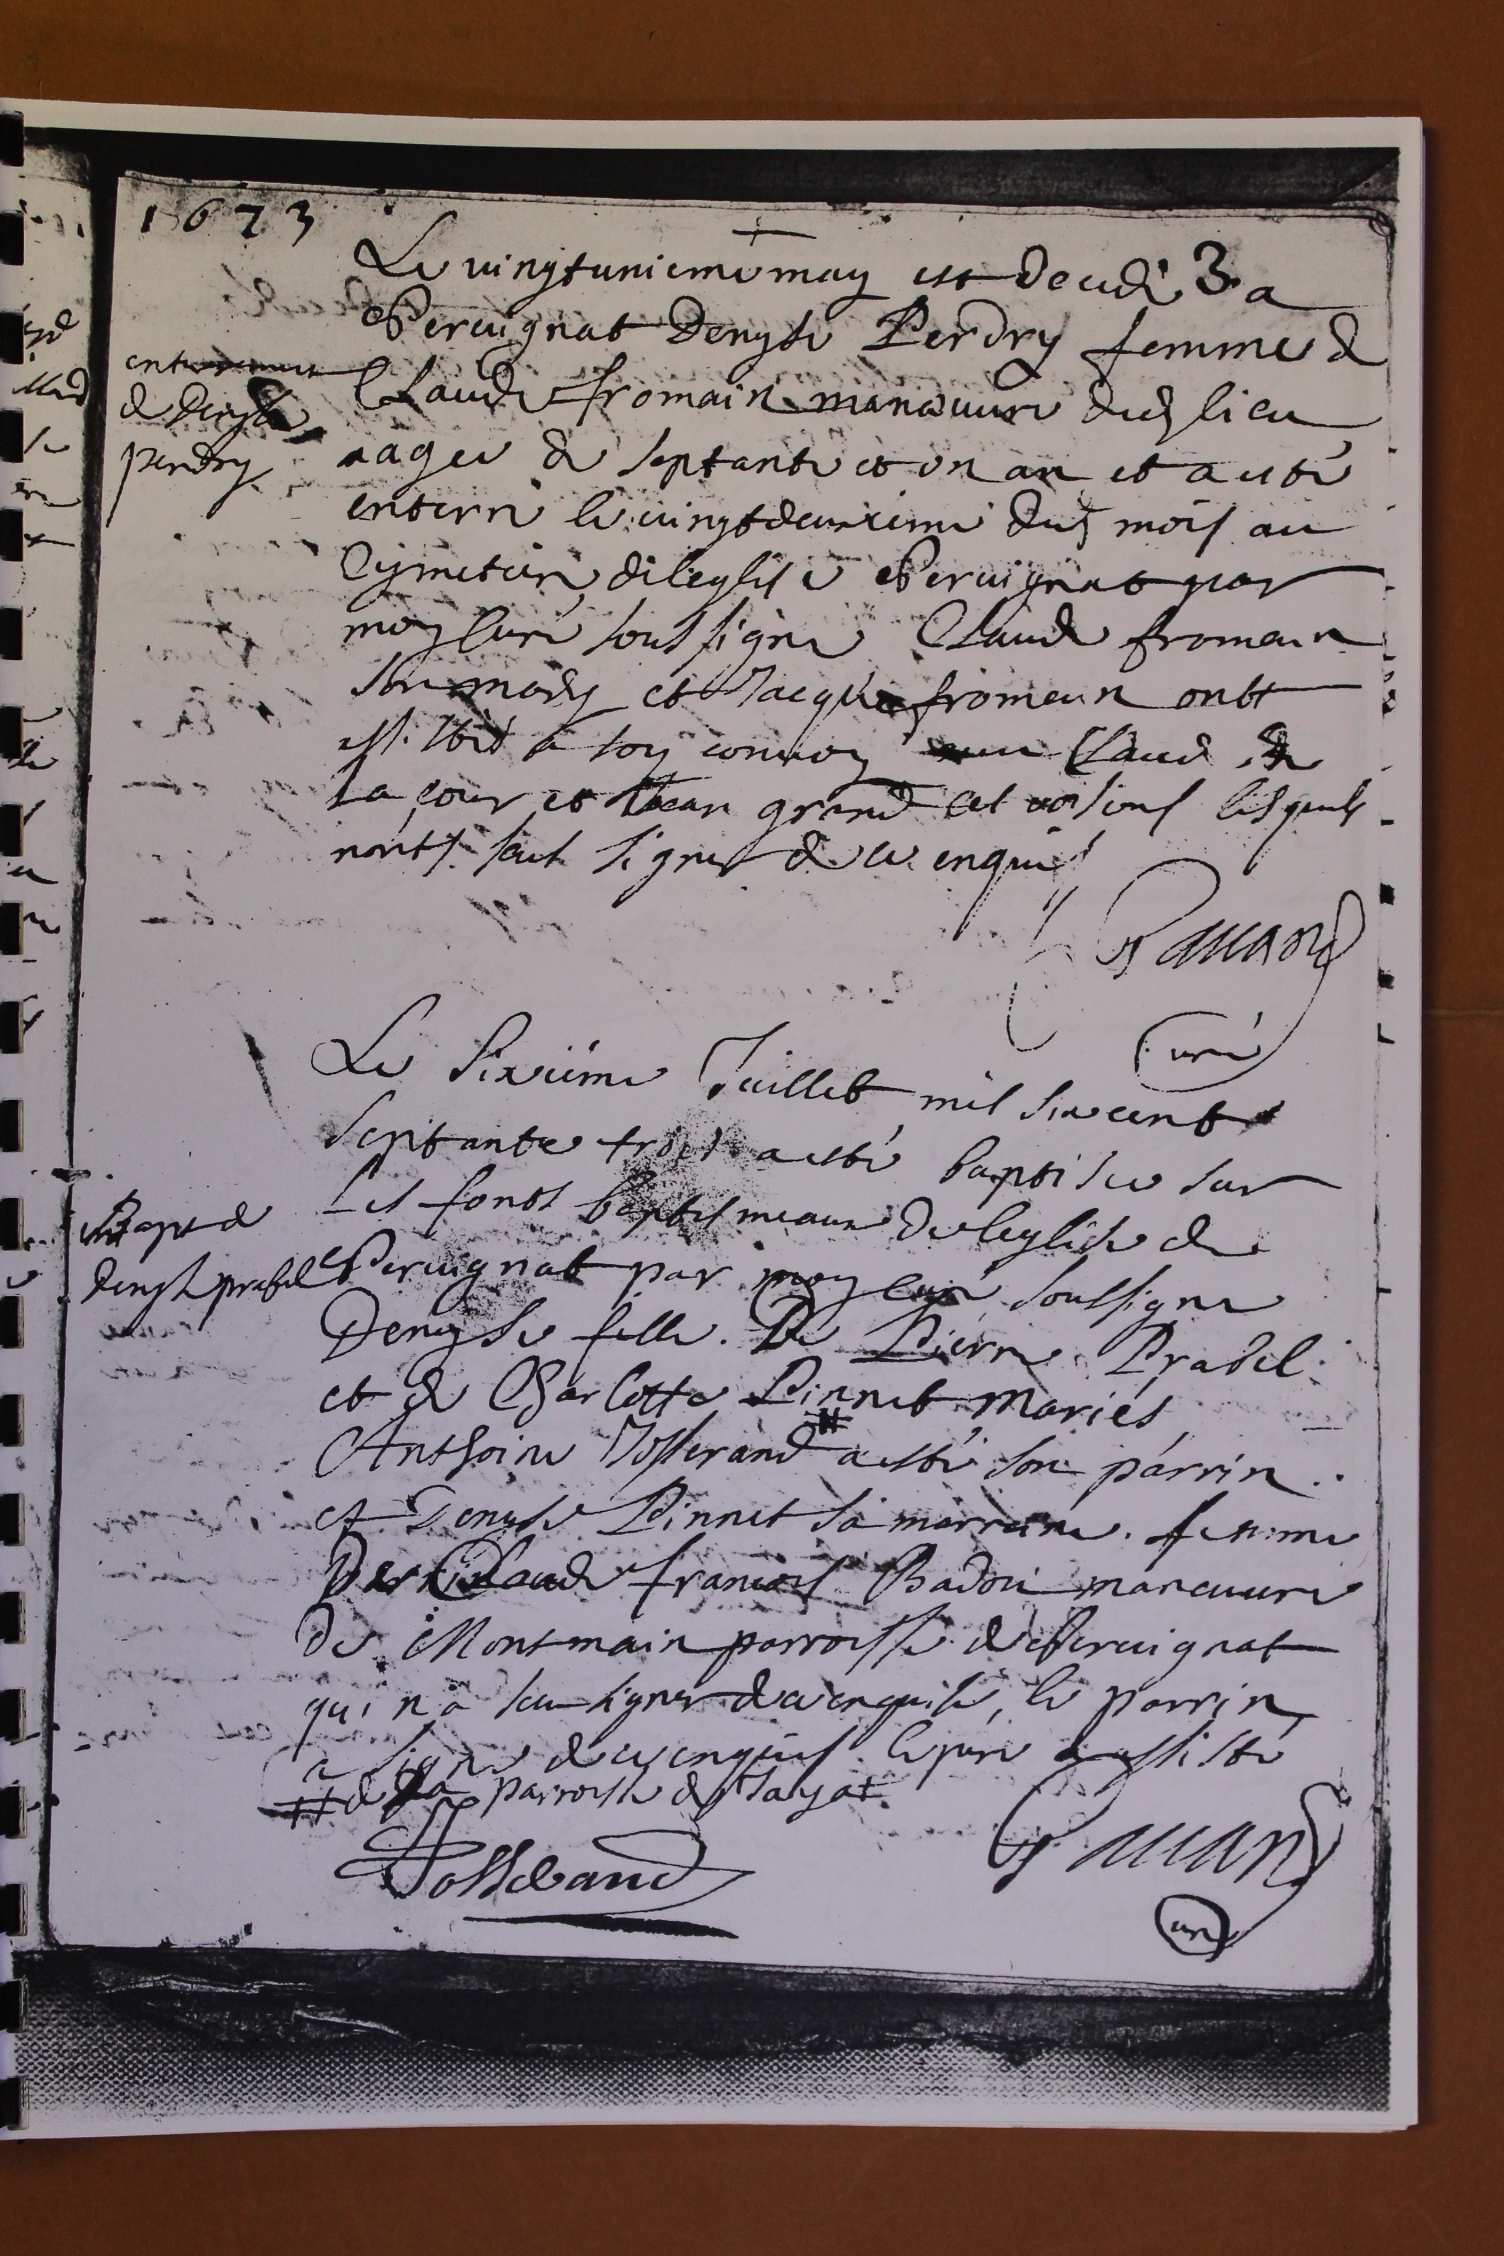 1673
Le vingtunieme may est decedé 3 a
Peruignat Denyse Perdry femme de
Claude fromain manœuure dud lieu
aagee de septante et un an et a esté
enterré le vingtdeuxieme dud mois au
Cymetiere de leglise Peruignat par
moy Curé soussigne Claude fromain
son mary et Jacque fromain ont
assisté a son convoy Claude de
la cour et Jean grand et voisins lesquels
n'ont sceut signer de ce enquis
enterrement
de Denyse
perdry
Paccand
curé
Le Sixieme Juillet mil six cent
Septante trois a esté baptisee sur
Les fonts baptismeaux de leglise de
Peruignat par moy curé soussigne
Denyse fille. De Pierre Prabel
et de Charlotte Pinnet mariés
Anthoine Josserand # a esté son parrin
et Denyse Pinnet sa marreine. femme
De Claude francois Badou manœuure
de Montmain parroisse de Peruignat
qui n'a sceu signer de ce enquise, le parrin
a signe de ce enquis. le pere a assisté
# de la parroisse de Jayat
Bapt de
Denyse prabel
Josserand
Paccand
curé